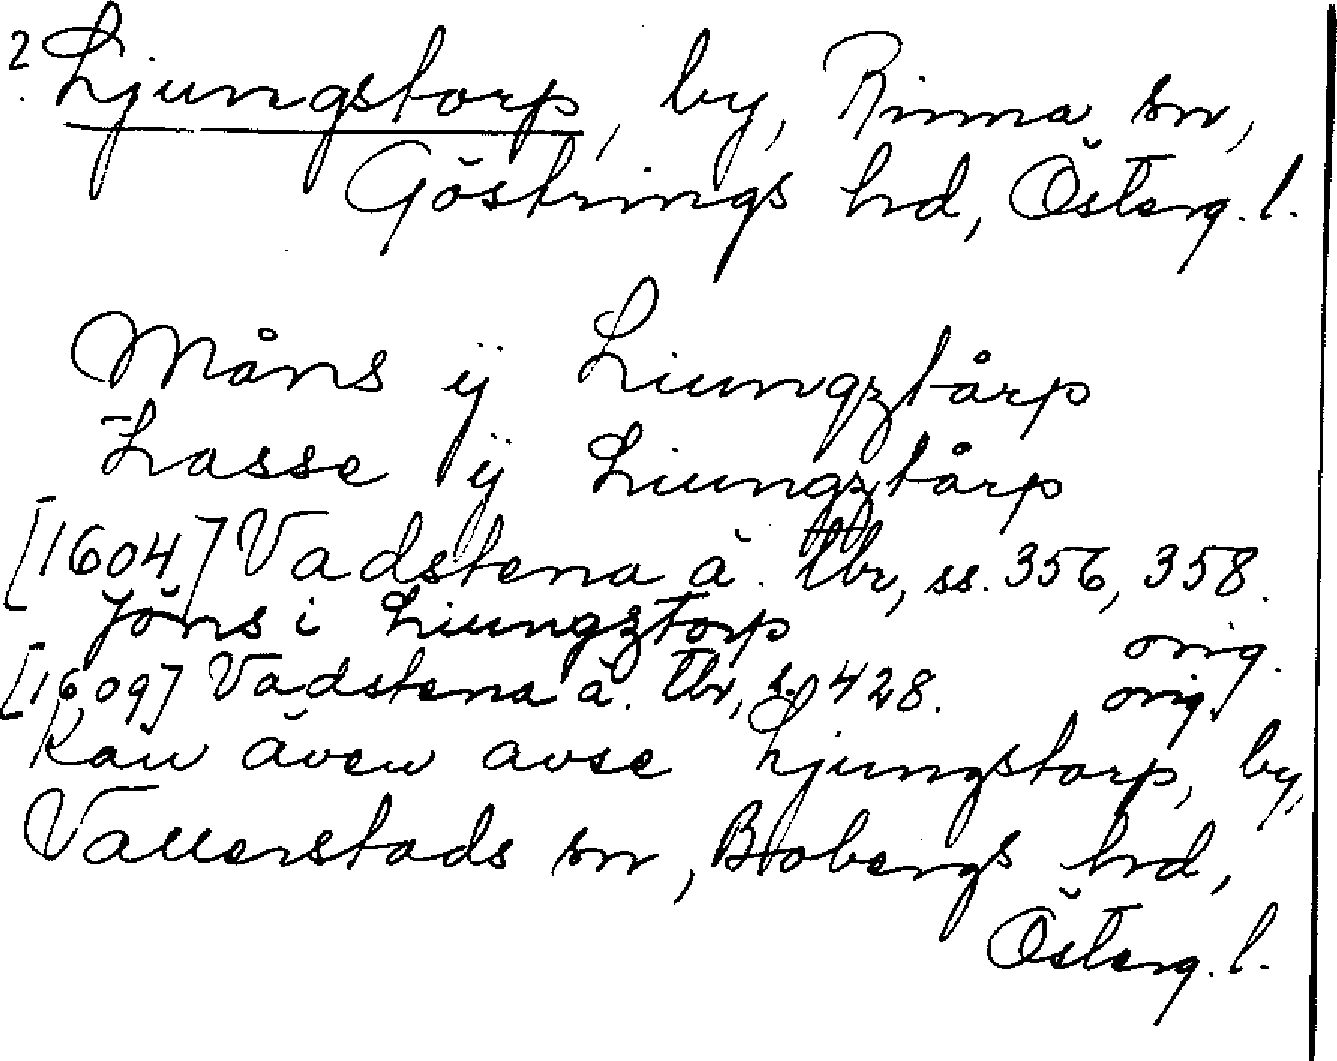 2. Ljungstorp, by, Rinna sn,
Göstrings hrd, Österg. l.
Måns ÿ Liungztårp
Lasse ÿ Liungztårp
[1604] Vadstena ä. tbr, ss. 356, 358.
orig.
Jöns i Liungztorp
[1609] Vadstena ä. tbr, s. 428. orig.
Kan även avse Ljungstorp, by,
Vallerstads sn, Bobergs hrd,
Österg. l.